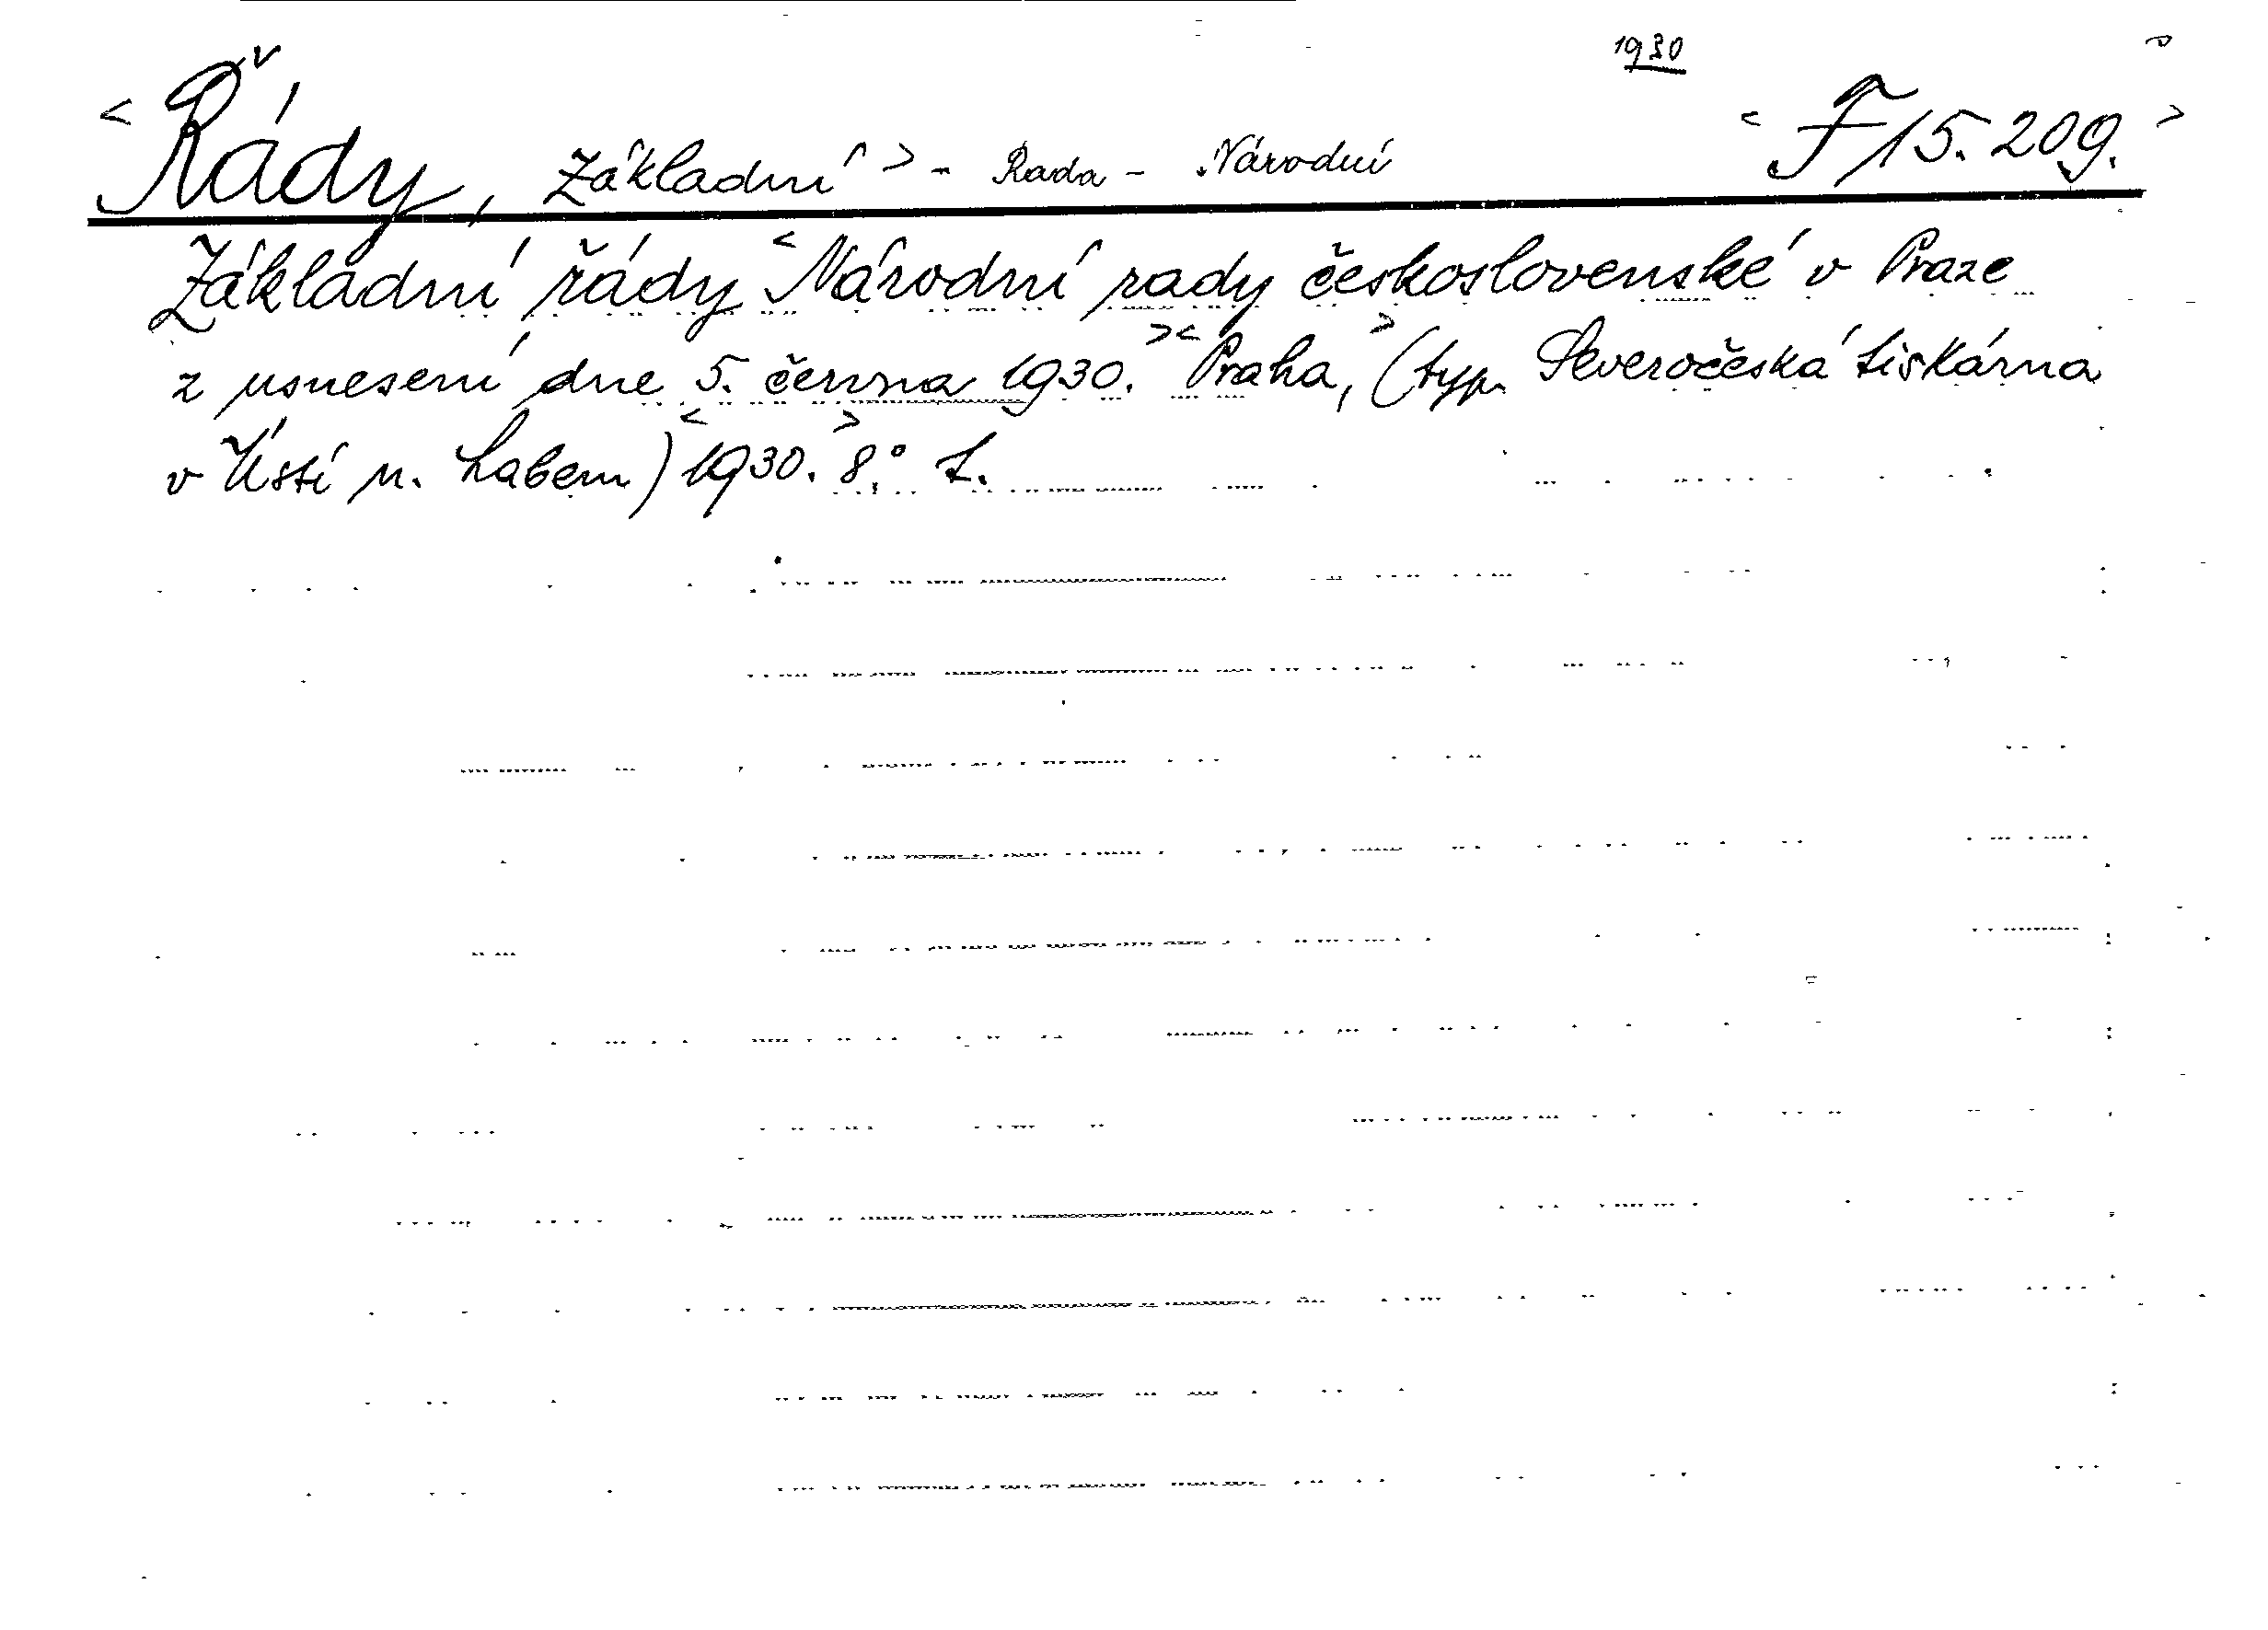 1930
<Řády, Základní> - Rada - Národní <F 15.209.>
Základní řády <Národní rady československé v Praze
z usnesení dne 5. června 1930.> <Praha,> (typ. Severočeská tiskárna
v Ústí n. Labem) <1930.> 8.°